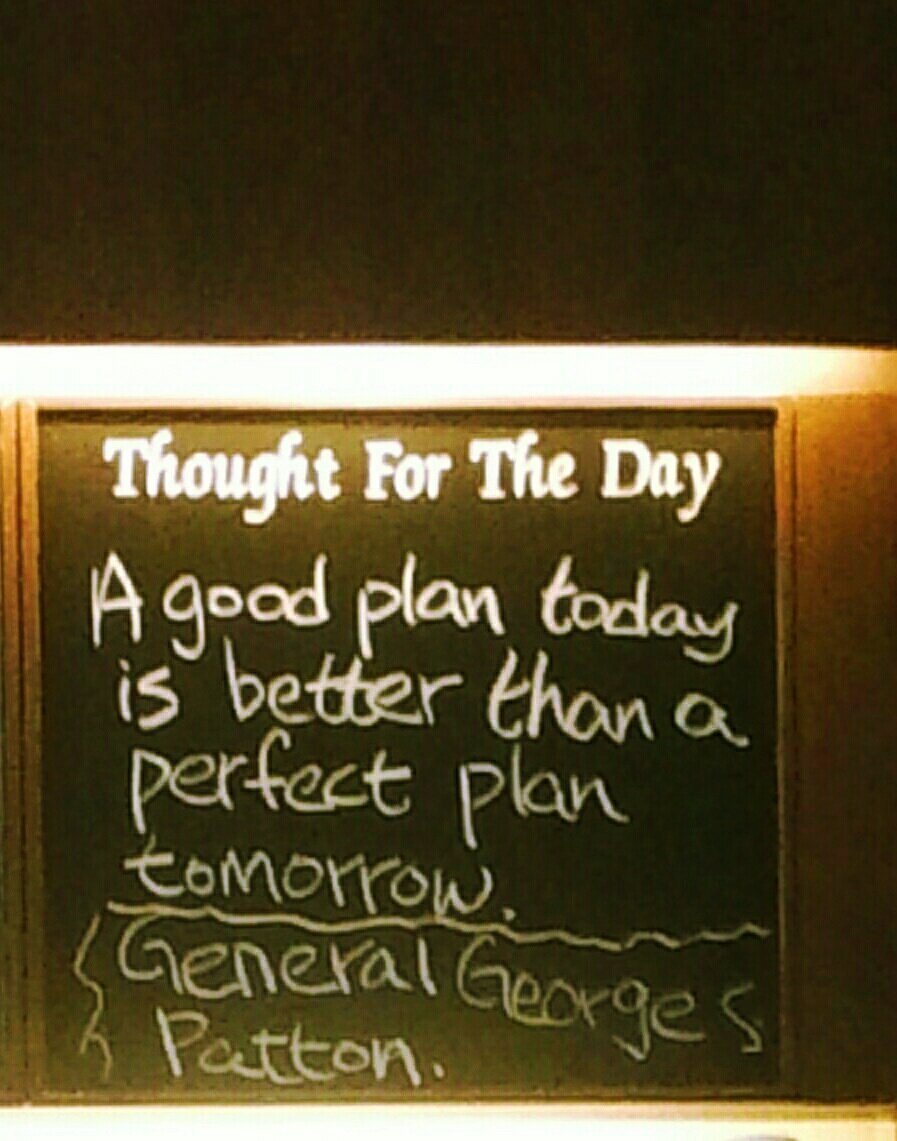 Thought For The Day
A good plan today
is better than a
perfect plan
tomorrow.
General George S
Patton.